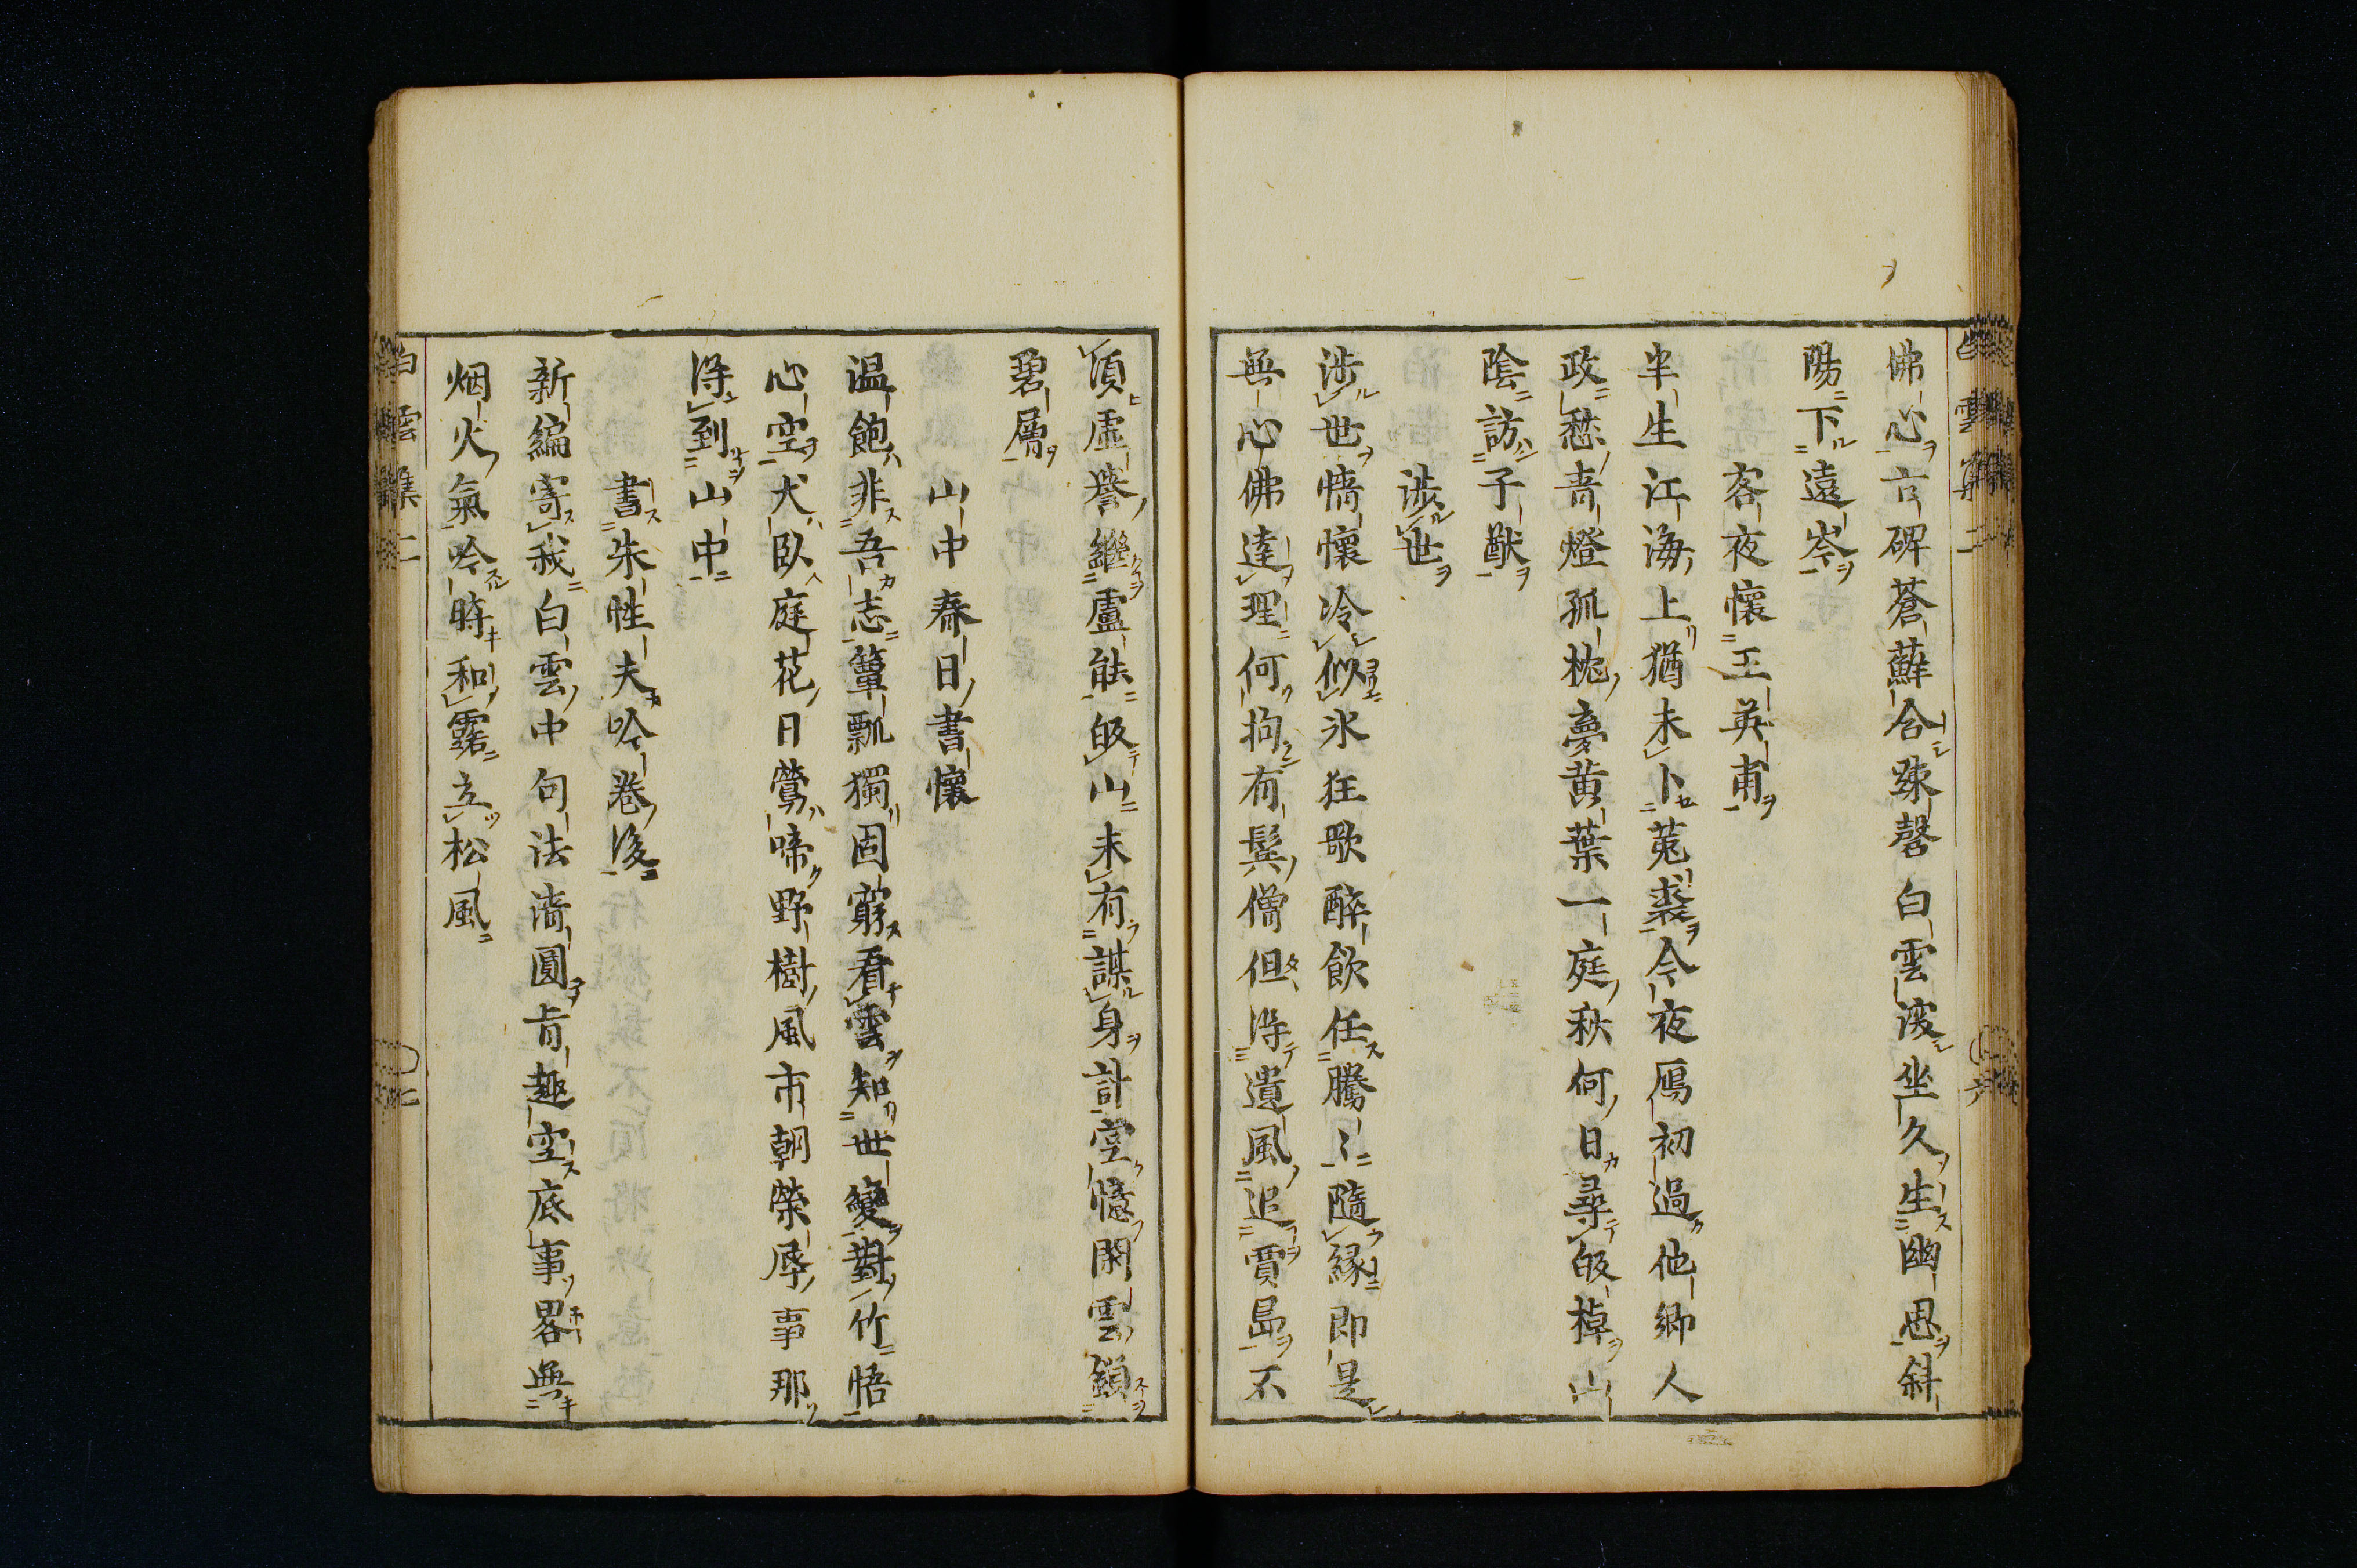 佛心古碑蒼蘚合踈磬白雲深坐久生幽思斜
陽下遠岑
客夜懷王英甫
半生江海上猶未卜菟裘今夜鴈初過他鄉人
政愁青燈孤枕夢黄葉一庭秋何日尋皈棹山
陰訪子猷
涉世
涉世情懷冷似氷狂歌醉飲任騰〻隨緣即是
無心佛達理何拘有髮僧但得遺風追賈島不
須虛譽繼盧能皈山未有謀身計空憶閑雲鎖
碧層
山中春日書懷
温飽非吾志簞瓢獨固窮看雲知世變對竹悟
心空犬臥庭花日鶯啼野樹風市朝榮辱事那
得到山中
書朱性夫吟卷後
新編寄我白雲中句法渍圓旨趣空底事畧無
烟火氣吟時和露立松風
白雲集二